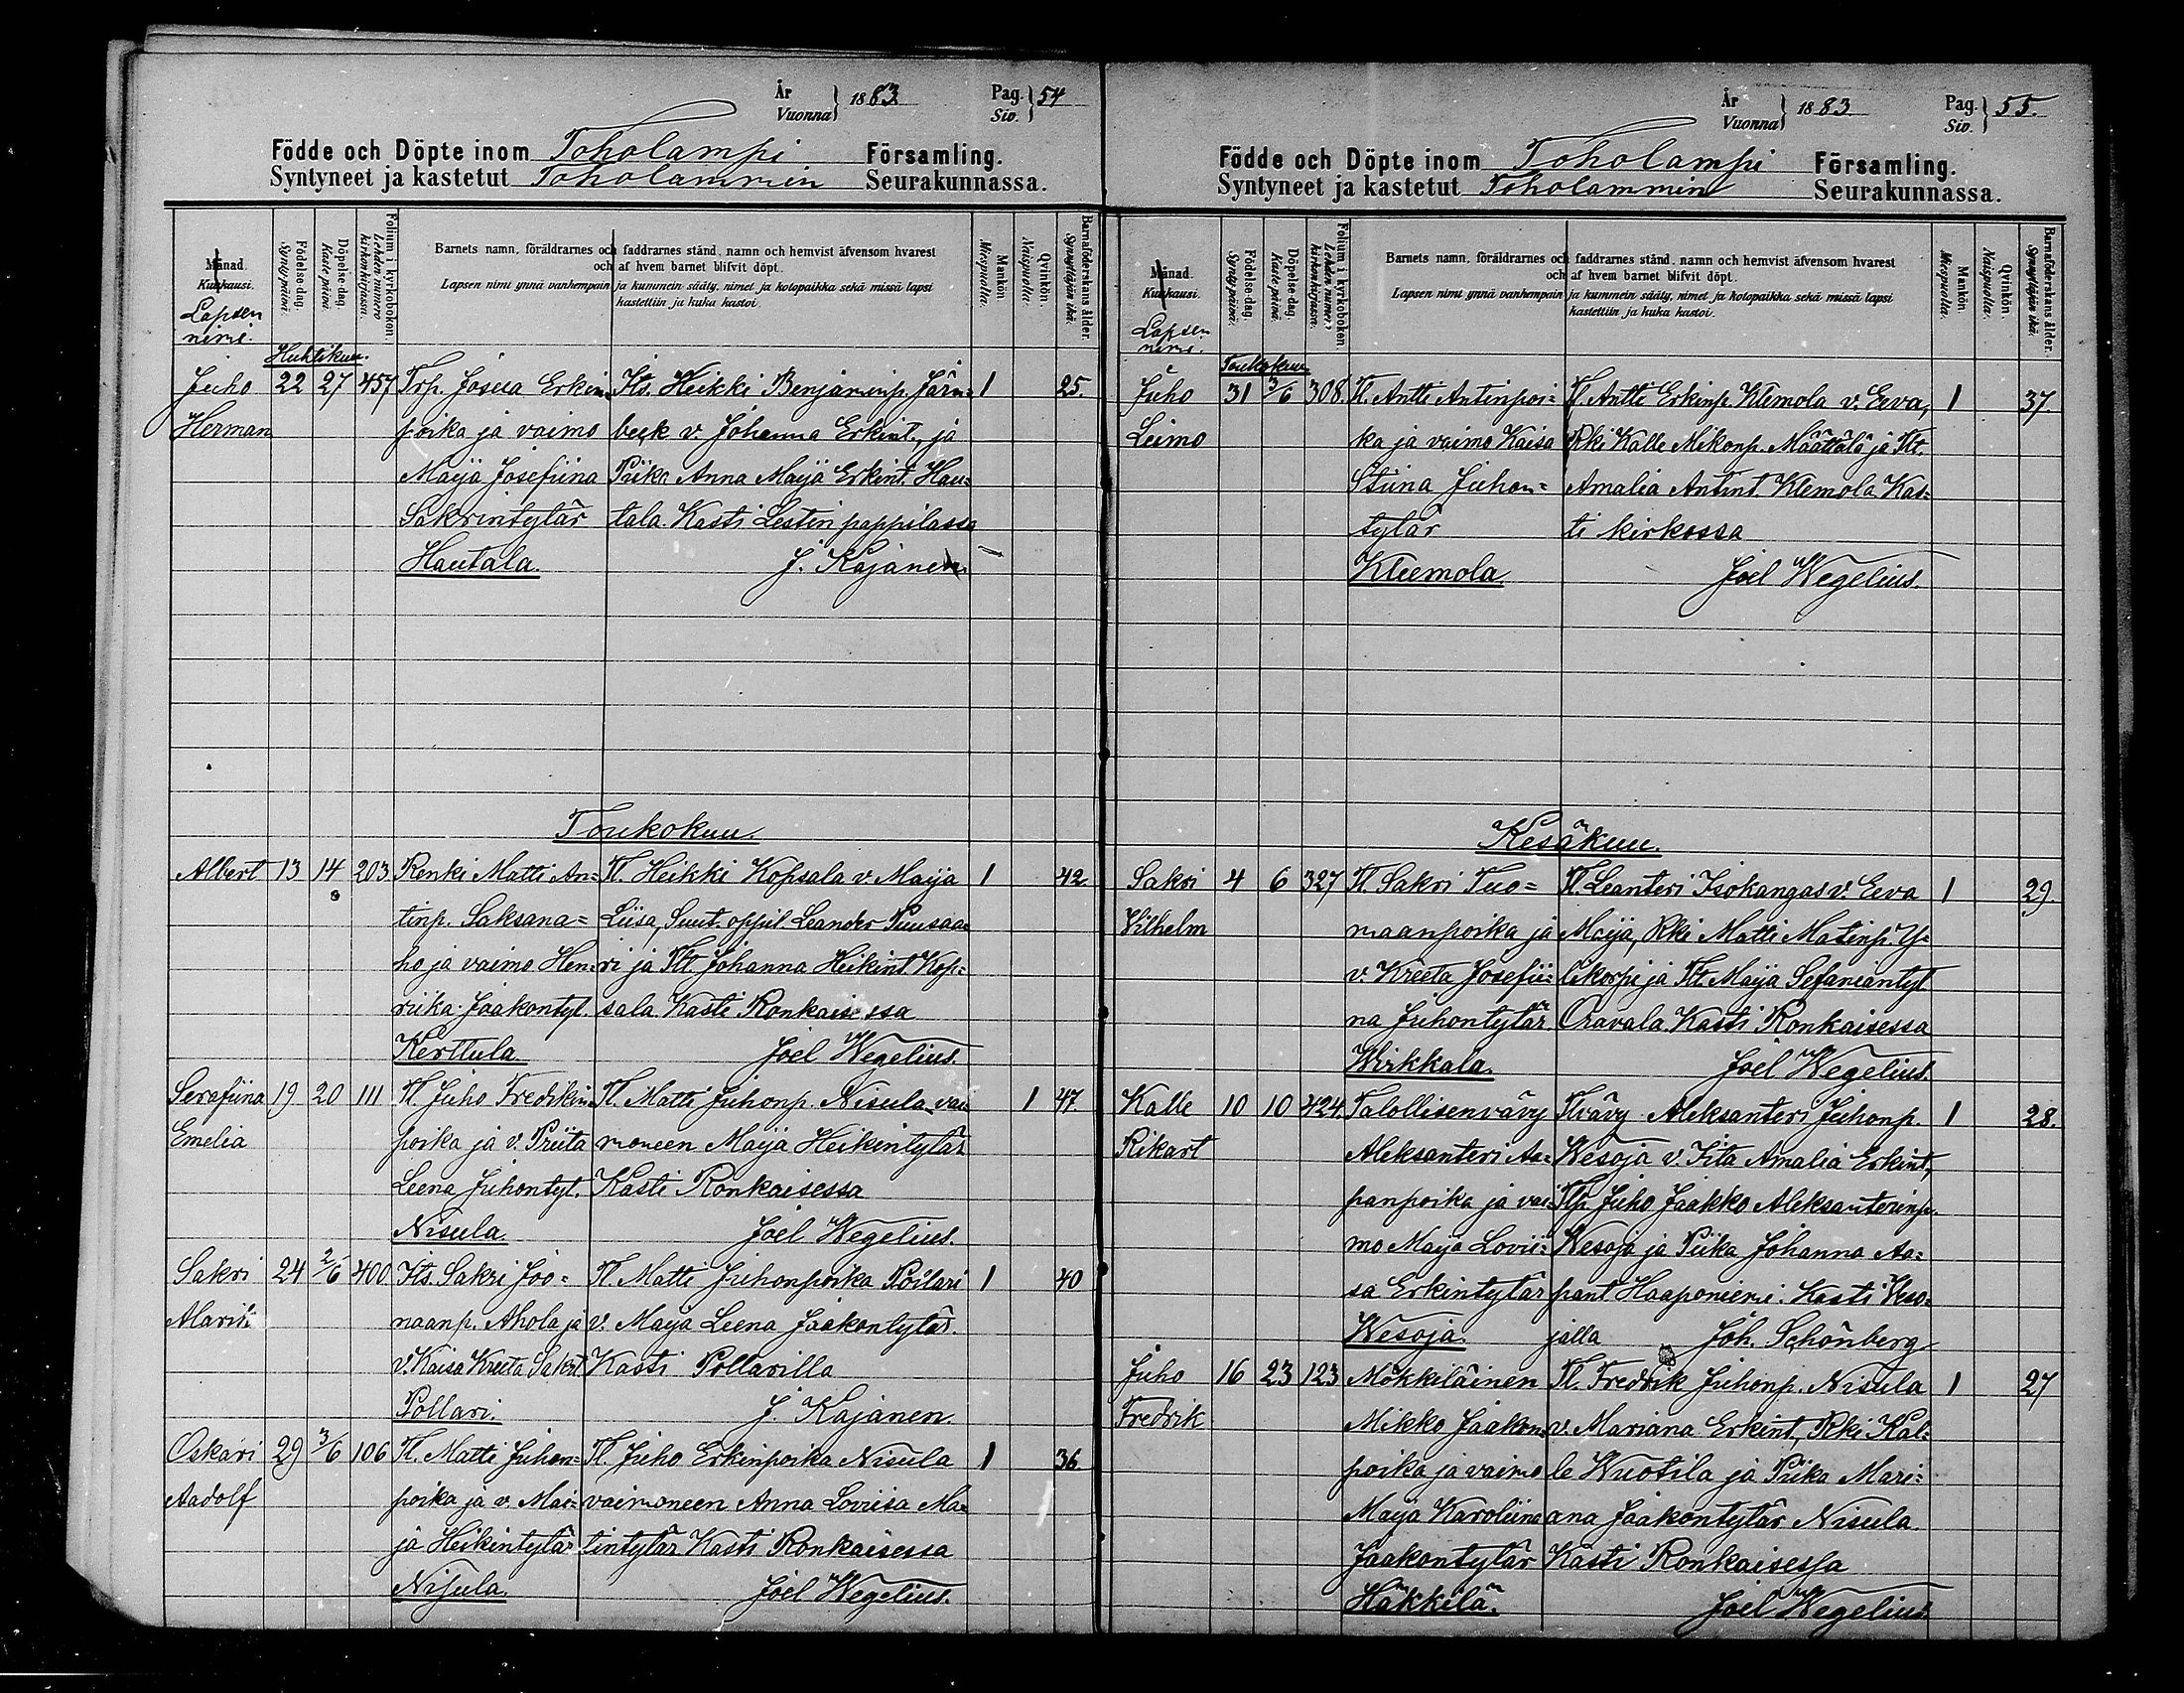 År
Vuonna
1883.
Pag.
Siv.
54
Födde och Döpte inom Toholampi Församling.
Syntyneet ja kastetut Toholammin Seurakunnassa.
Månad.
Kuukausi.
Lapsen
nimi.
Födelse-dag.
Synty-päivä.
Döpelse-dag.
Kaste-päivä.
Folium i kyrkoboken.
Lehden numero kirkonkirjassa.
Barnets namn, föräldrarnes och faddrarnes stånd, namn och hemvist äfvensom hvarest
och af hvem barnet blifvit döpt.
Lapsen nimi ynnä vanhempain ja kummein sääty, nimet ja kotopaikka sekä missä lapsi
kastettiin ja kuka kastoi.
Mankön.
Miespuolta.
Qvinkön.
Naispuolta.
Barnaföderskans ålder.
Synnyttäjän ikä.
Huhtikuu.
Juho 22 27 457 Trp. Josua Erkin= Its. Heikki Benjaminp. Järn= 1 25.
Herman poika ja vaimo beck v. Johanna Erkint., ja
Maija Josefiina Piika Anna Maija Erkint. Hau=
Sakrintytär tala. Kasti Lestin pappilassa
Hautala. J. Kajanen.
Toukokuu.
Albert 13 14 203 Renki Matti An= Tl. Heikki Kopsala v. Maija 1 42.
tinp. Saksana= Liisa, Suut. oppil. Leander Puusaa=
ho ja vaimo Hen= ri ja Tlt. Johanna Heikint. Kop=
riika Jaakontyt. sala Kasti Ronkaisessa
Kerttula Joel Wegelius.
Serafiina 19 20 111 Tl Juho Fredrikin= Tl. Matti Juhonp. Nisula vai= 1 47.
Emelia poika ja v. Priita moneen Maija Heikintytär
Leena Juhontyt. Kasti Ronkaisessa
Nisula. Joel Wegelius.
Sakri 24 2/6 400 Its. Sakri Joo= Tl. Matti Juhonpoika Pollari 1 40
Alarik naanp. Ahola ja v. Maija Leena Jaakontytär.
v. Kaisa Kreeta Sakrit. Kasti Pollarilla
Pollari. J. Kajanen.
Oskari 29 3/6 106 Tl. Matti Juhon= Tl. Juho Erkinpoika Nisula 1 36.
Aadolf poika ja v. Mai= vaimoneen Anna Loviisa Ma=
ja Heikintytär tintytär. Kasti Ronkaisessa
Nisula. Joel Wegelius.
År
Vuonna
1883.
Pag.
Siv.
55.
Födde och Döpte inom Toholampi Församling.
Syntyneet ja kastetut Toholammin Seurakunnassa.
Månad.
Kuukausi.
Lapsen
nimi.
Födelse-dag.
Synty-päivä.
Döpelse-dag.
Kaste-päivä.
Folium i kyrkoboken.
Lehden numero kirkonkirjassa.
Barnets namn, föräldrarnes och faddrarnes stånd, namn och hemvist äfvensom hvarest
och af hvem barnet blifvit döpt.
Lapsen nimi ynnä vanhempain ja kummein sääty, nimet ja kotopaikka sekä missä lapsi
kastettiin ja kuka kastoi.
Mankön.
Miespuolta.
Qvinkön.
Naispuolta.
Barnaföderskans ålder.
Synnyttäjän ikä.
Toukokuu.
Juho 31 3/6 308. Tl. Antti Antinpoi= Tl. Antti Erkinp. Klemola v. Eeva, 1 37.
Leimo ka ja vaimo Kaisa Rki Kalle Mikonp. Määttälä ja Tlt.
Stiina Juhon= Amalia Antint. Klemola. Kas=
tytär ti kirkossa
Kleemola Joel Wegelius.
Kesäkuu.
Sakri 4 6 327 Tl. Sakri Tuo= Tl. Leanteri Isokangas v. Eeva 1 29.
Vilhelm maanpoika ja Maija, Rki Matti Matinp. Y=
v. Kreeta Josefii= likorpi ja Tlt. Maija Sefaniantyt
na Juhontytär Oravala. Kasti Ronkaisessa
Wirkkala. Joel Wegelius.
Kalle 10 10 424. Talollisenvävy Tlvävy Aleksanteri Juhonp. 1 28.
Rikart Aleksanteri Aa= Wesoja v. Iita Amalia Erkint,
panpoika ja vai= Tlp. Juho Jaakko Aleksanterinp.
mo Maija Lovii= Wesoja ja Piika Johanna Aa=
sa Erkintytär pant Haaponiemi. Kasti Veso=
Wesoja. jalla Joh. Schönberg
Juho 16 23 123 Mökkiläinen Tl. Fredrik Juhonp. Nisula 1 27
Fredrik Mikko Jaakon= v. Mariana Erkint, Rki Kal=
poika ja vaimo le Wuotila ja Piika Mari=
Maija Karoliina ana Jaakontytär Nisula.
Jaakontytär Kasti Ronkaisessa
Häkkilä. Joel Wegelius.